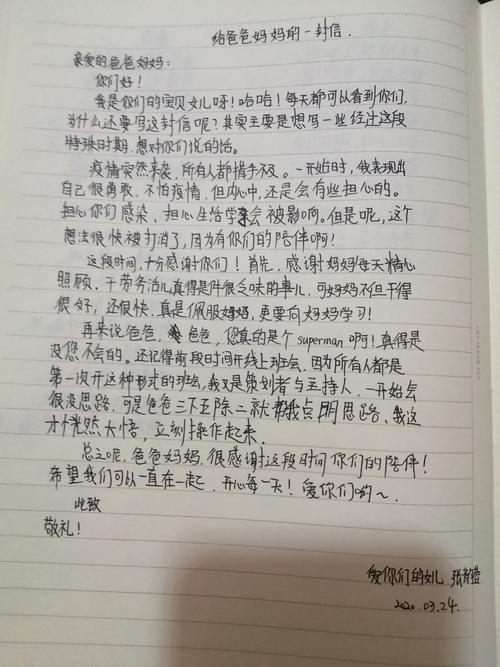 给爸爸妈妈的一封信.
亲爱的爸爸妈妈：
你们好！
我是你们的宝贝女儿呀！哈哈！每天都可以看到你们,
为什么还要写这封信呢？其实主要是想写一些经过这段
特殊时期,想对你们说的话。
疫情突然来袭,所有人都措手不及。一开始时,我表现出
自己很勇敢,不怕疫情,但内心中,还是会有些担心的。
担心你们感染,担心生活学习会被影响。但是呢,这个
想法很快被打消了,因为有你们的陪伴啊！
这段时间,十分感谢你们！首先,感谢妈妈每天精心
照顾,干劳务活儿真得是件很乏味的事儿,可妈妈不但干得
很好,还很快,真是佩服妈妈,更要向妈妈学习！
再来说爸爸,爸爸,您真的是个superman啊！真得是
没您不会的。还记得前段时间开线上班会,因为所有人都是
第一次开这种形式的班会,我又是策划者与主持人,一开始会
很没思路,可是爸爸三下五除二就帮我点明思路、我这
才恍然大悟,立刻操作起来.
总之呢,爸爸妈妈,很感谢这段时间你们的陪伴！
希望我们可以一直在一起,开心每一天！爱你们哟~.
此致
敬礼！
爱你们的女儿 张
2020.03.24.